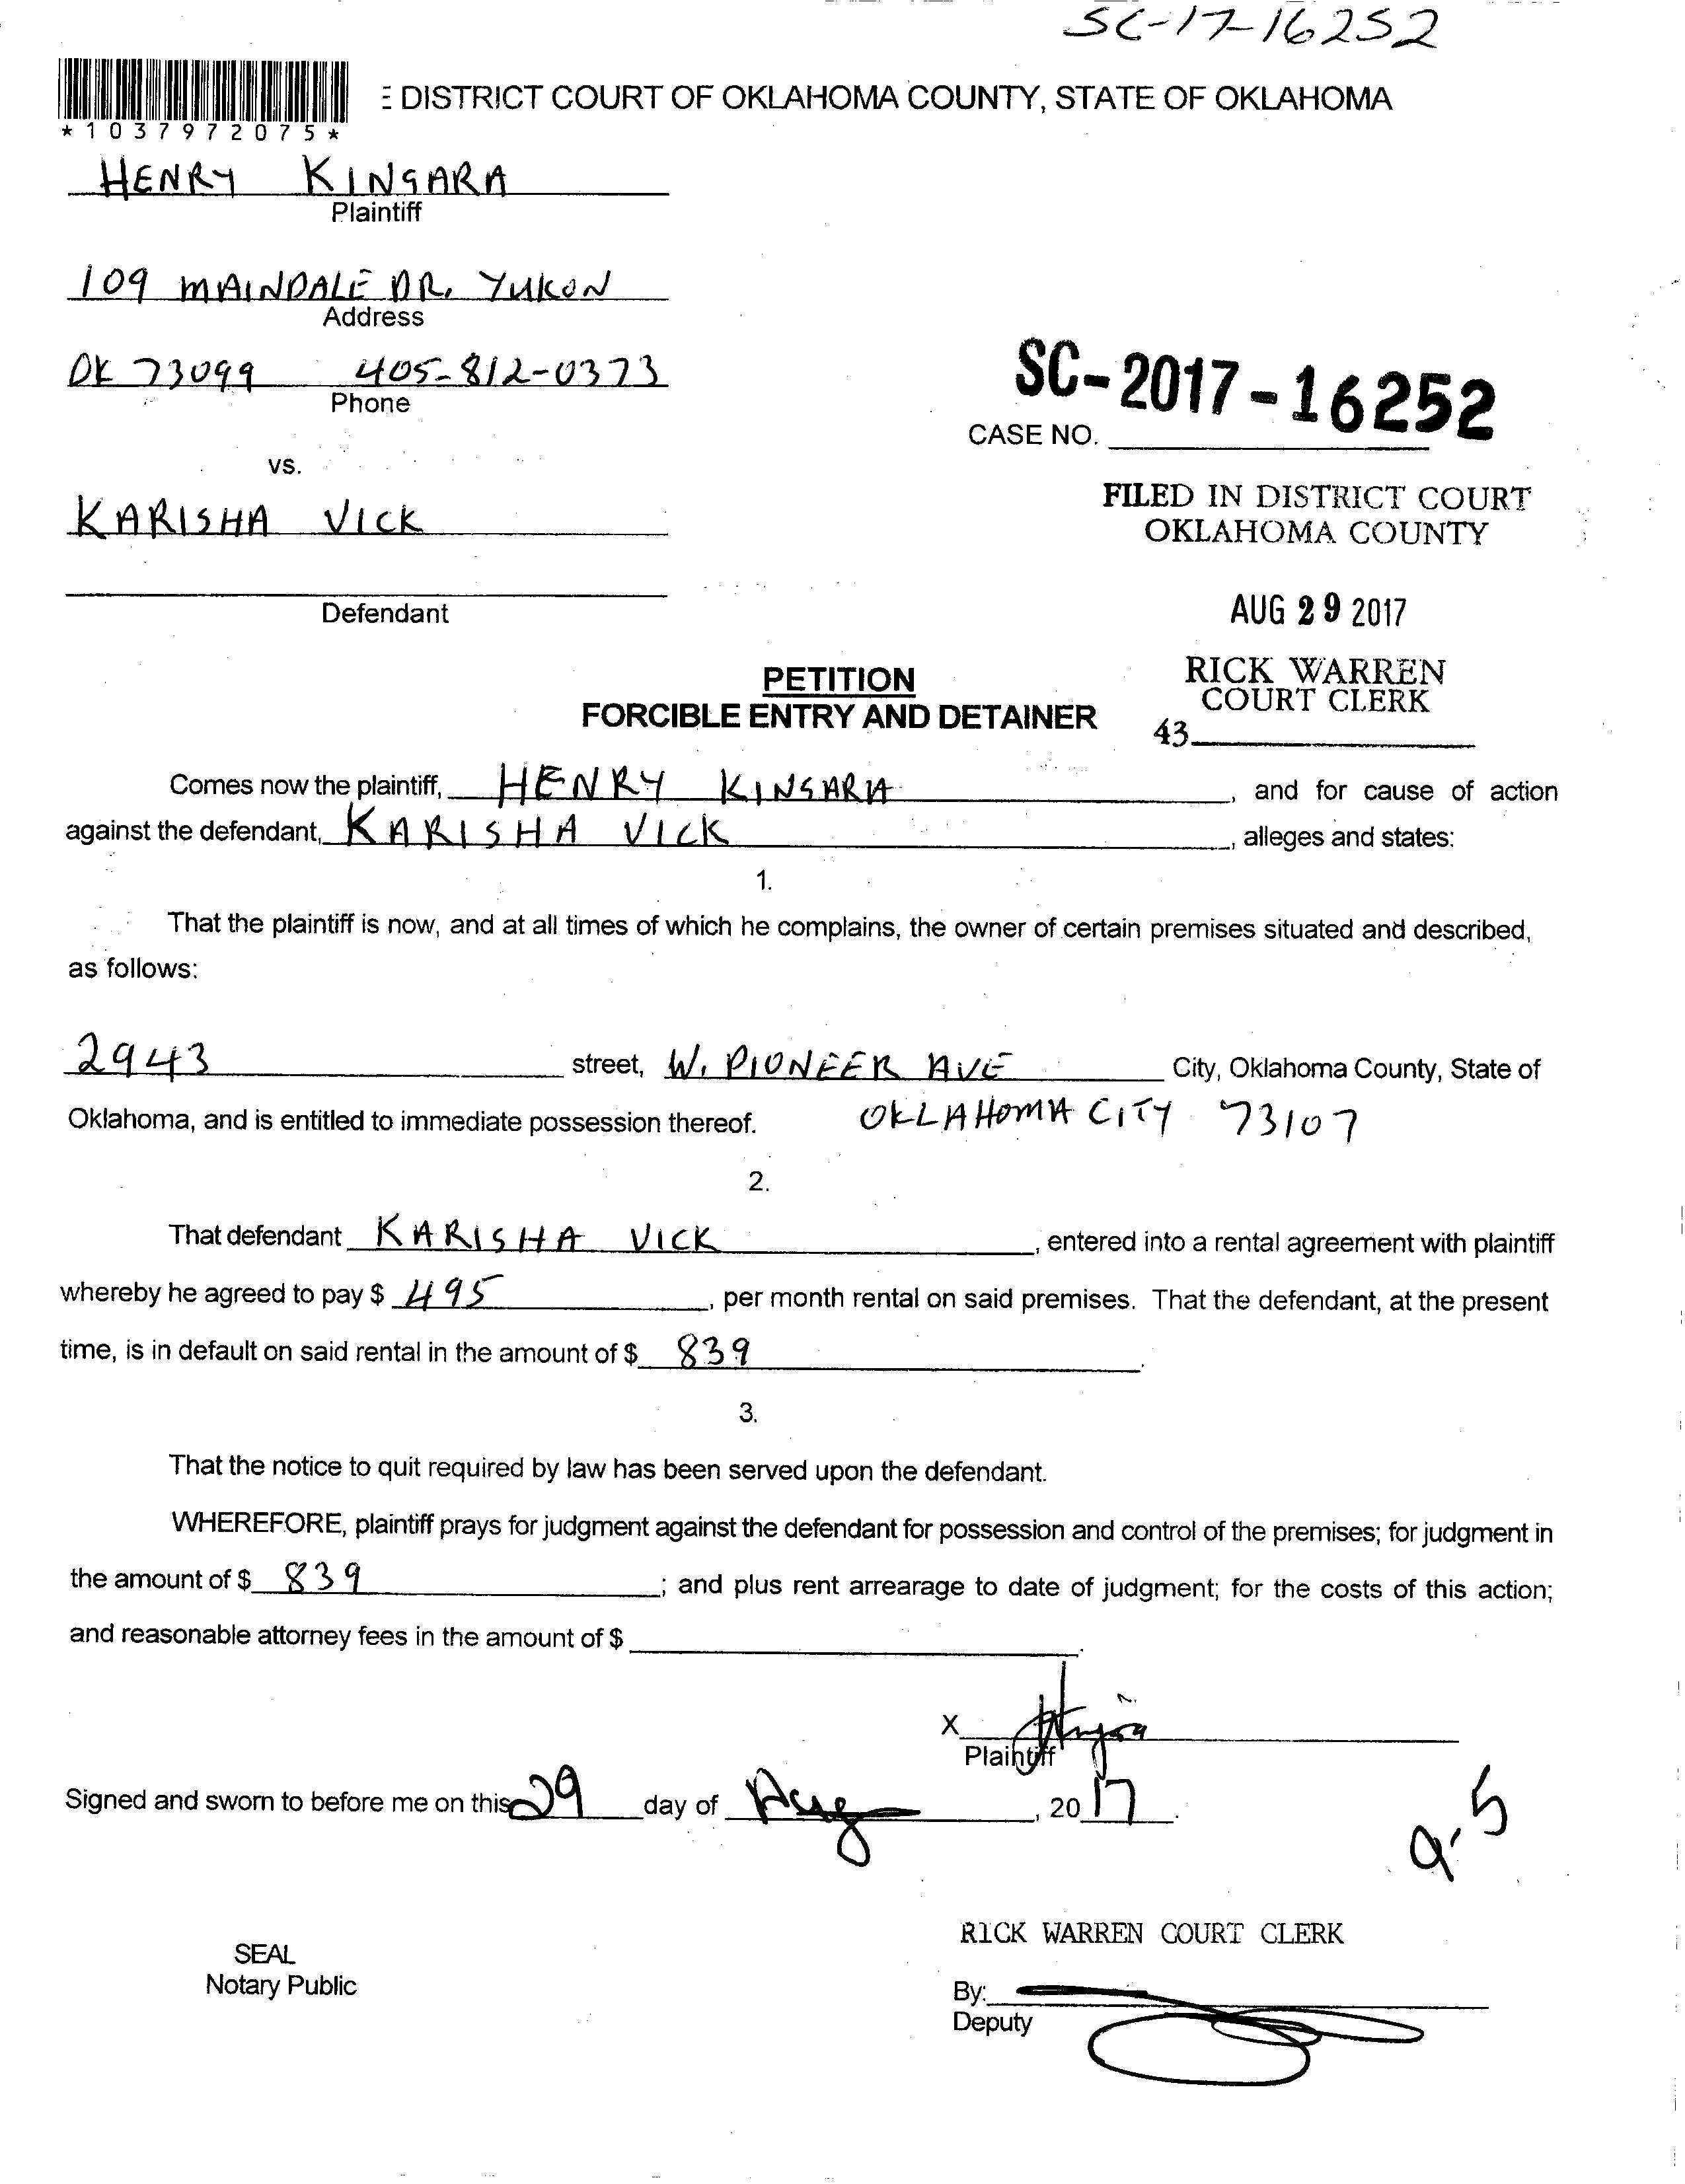 SC-17-16252
E DISTRICT COURT OF OKLAHOMA COUNTY, STATE OF OKLAHOMA
*1037972075*
HENRY KINGARA
Plaintiff
109 MAINDALE DR. YUKON
Address
OK 73099 405-812-0373
Phone
SC-2017-16252
CASE NO.
vs.
KARISHA VICK
FILED IN DISTRICT COURT
OKLAHOMA COUNTY
Defendant
AUG 29 2017
PETITION
FORCIBLE ENTRY AND DETAINER
RICK WARREN
COURT CLERK
43
Comes now the plaintiff, HENRY KINGARA, and for cause of action
against the defendant, KARISHA VICK, alleges and states:
1.
That the plaintiff is now, and at all times of which he complains, the owner of certain premises situated and described,
as follows:
2943 street, W. PIONEER AVE City, Oklahoma County, State of
Oklahoma, and is entitled to immediate possession thereof. OKLAHOMA CITY 73107
2.
That defendant KARISHA VICK, entered into a rental agreement with plaintiff
whereby he agreed to pay $ 495, per month rental on said premises. That the defendant, at the present
time, is in default on said rental in the amount of $ 839.
3.
That the notice to quit required by law has been served upon the defendant.
WHEREFORE, plaintiff prays for judgment against the defendant for possession and control of the premises; for judgment in
the amount of $ 839; and plus rent arrearage to date of judgment; for the costs of this action;
and reasonable attorney fees in the amount of $ .
X
Plaintiff
Signed and sworn to before me on this 29 day of Aug, 2017.
9-5
RICK WARREN COURT CLERK
SEAL
Notary Public
By:
Deputy